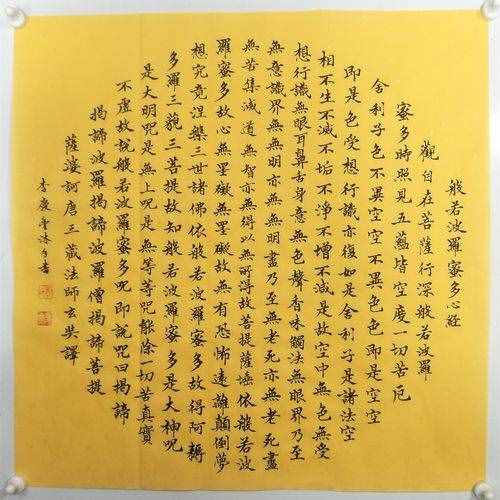 般若波羅蜜多心経
觀自在菩薩行深般若波羅
蜜多時照見五蘊皆空度一切苦厄
舍利子色不異空空不異色色即是空空
即是色受想行識亦復如是舍利子是諸法空
相不生不滅不垢不淨不增不減是故空中無色無受
想行識無眼耳鼻舌身意無色聲香味觸法無眼界乃至
無意識界無無明亦無無明盡乃至無老死亦無老死盡
無苦集滅道無智亦無得以無所得故菩提薩埵依般若波
羅蜜多故心無罣礙無罣礙故無有恐怖遠離顛倒夢
想究竟涅槃三世諸佛依般若波羅蜜多故得阿耨
多羅三藐三菩提故知般若波羅蜜多是大神呪
是大明呪是無上呪是無等等呪能除一切苦真實
不虛故說般若波羅蜜多呪即說呪曰揭諦
揭諦波羅揭諦波羅僧揭諦菩提
薩婆訶唐三藏法師玄奘譯